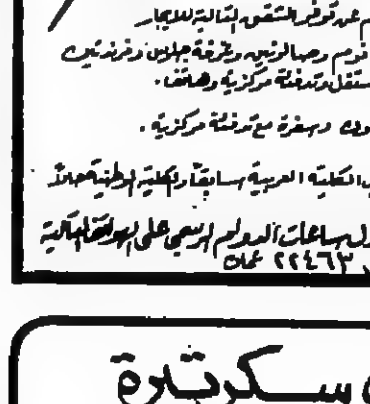 م عن توفر الشقق التالية للايجار
نوم وصالونين وغرفة جلوس وفرندتين
ستقل وتدفئة مركزية وهاتف .
وسفرة مع تدفئة مركزية .
الكلية العربية سابقاً والكلية الوطنية حالاً
ساعات الدوام الرسمي على الهواتف التالية
٢٢٤٦٣ عمان
سكرتيرة